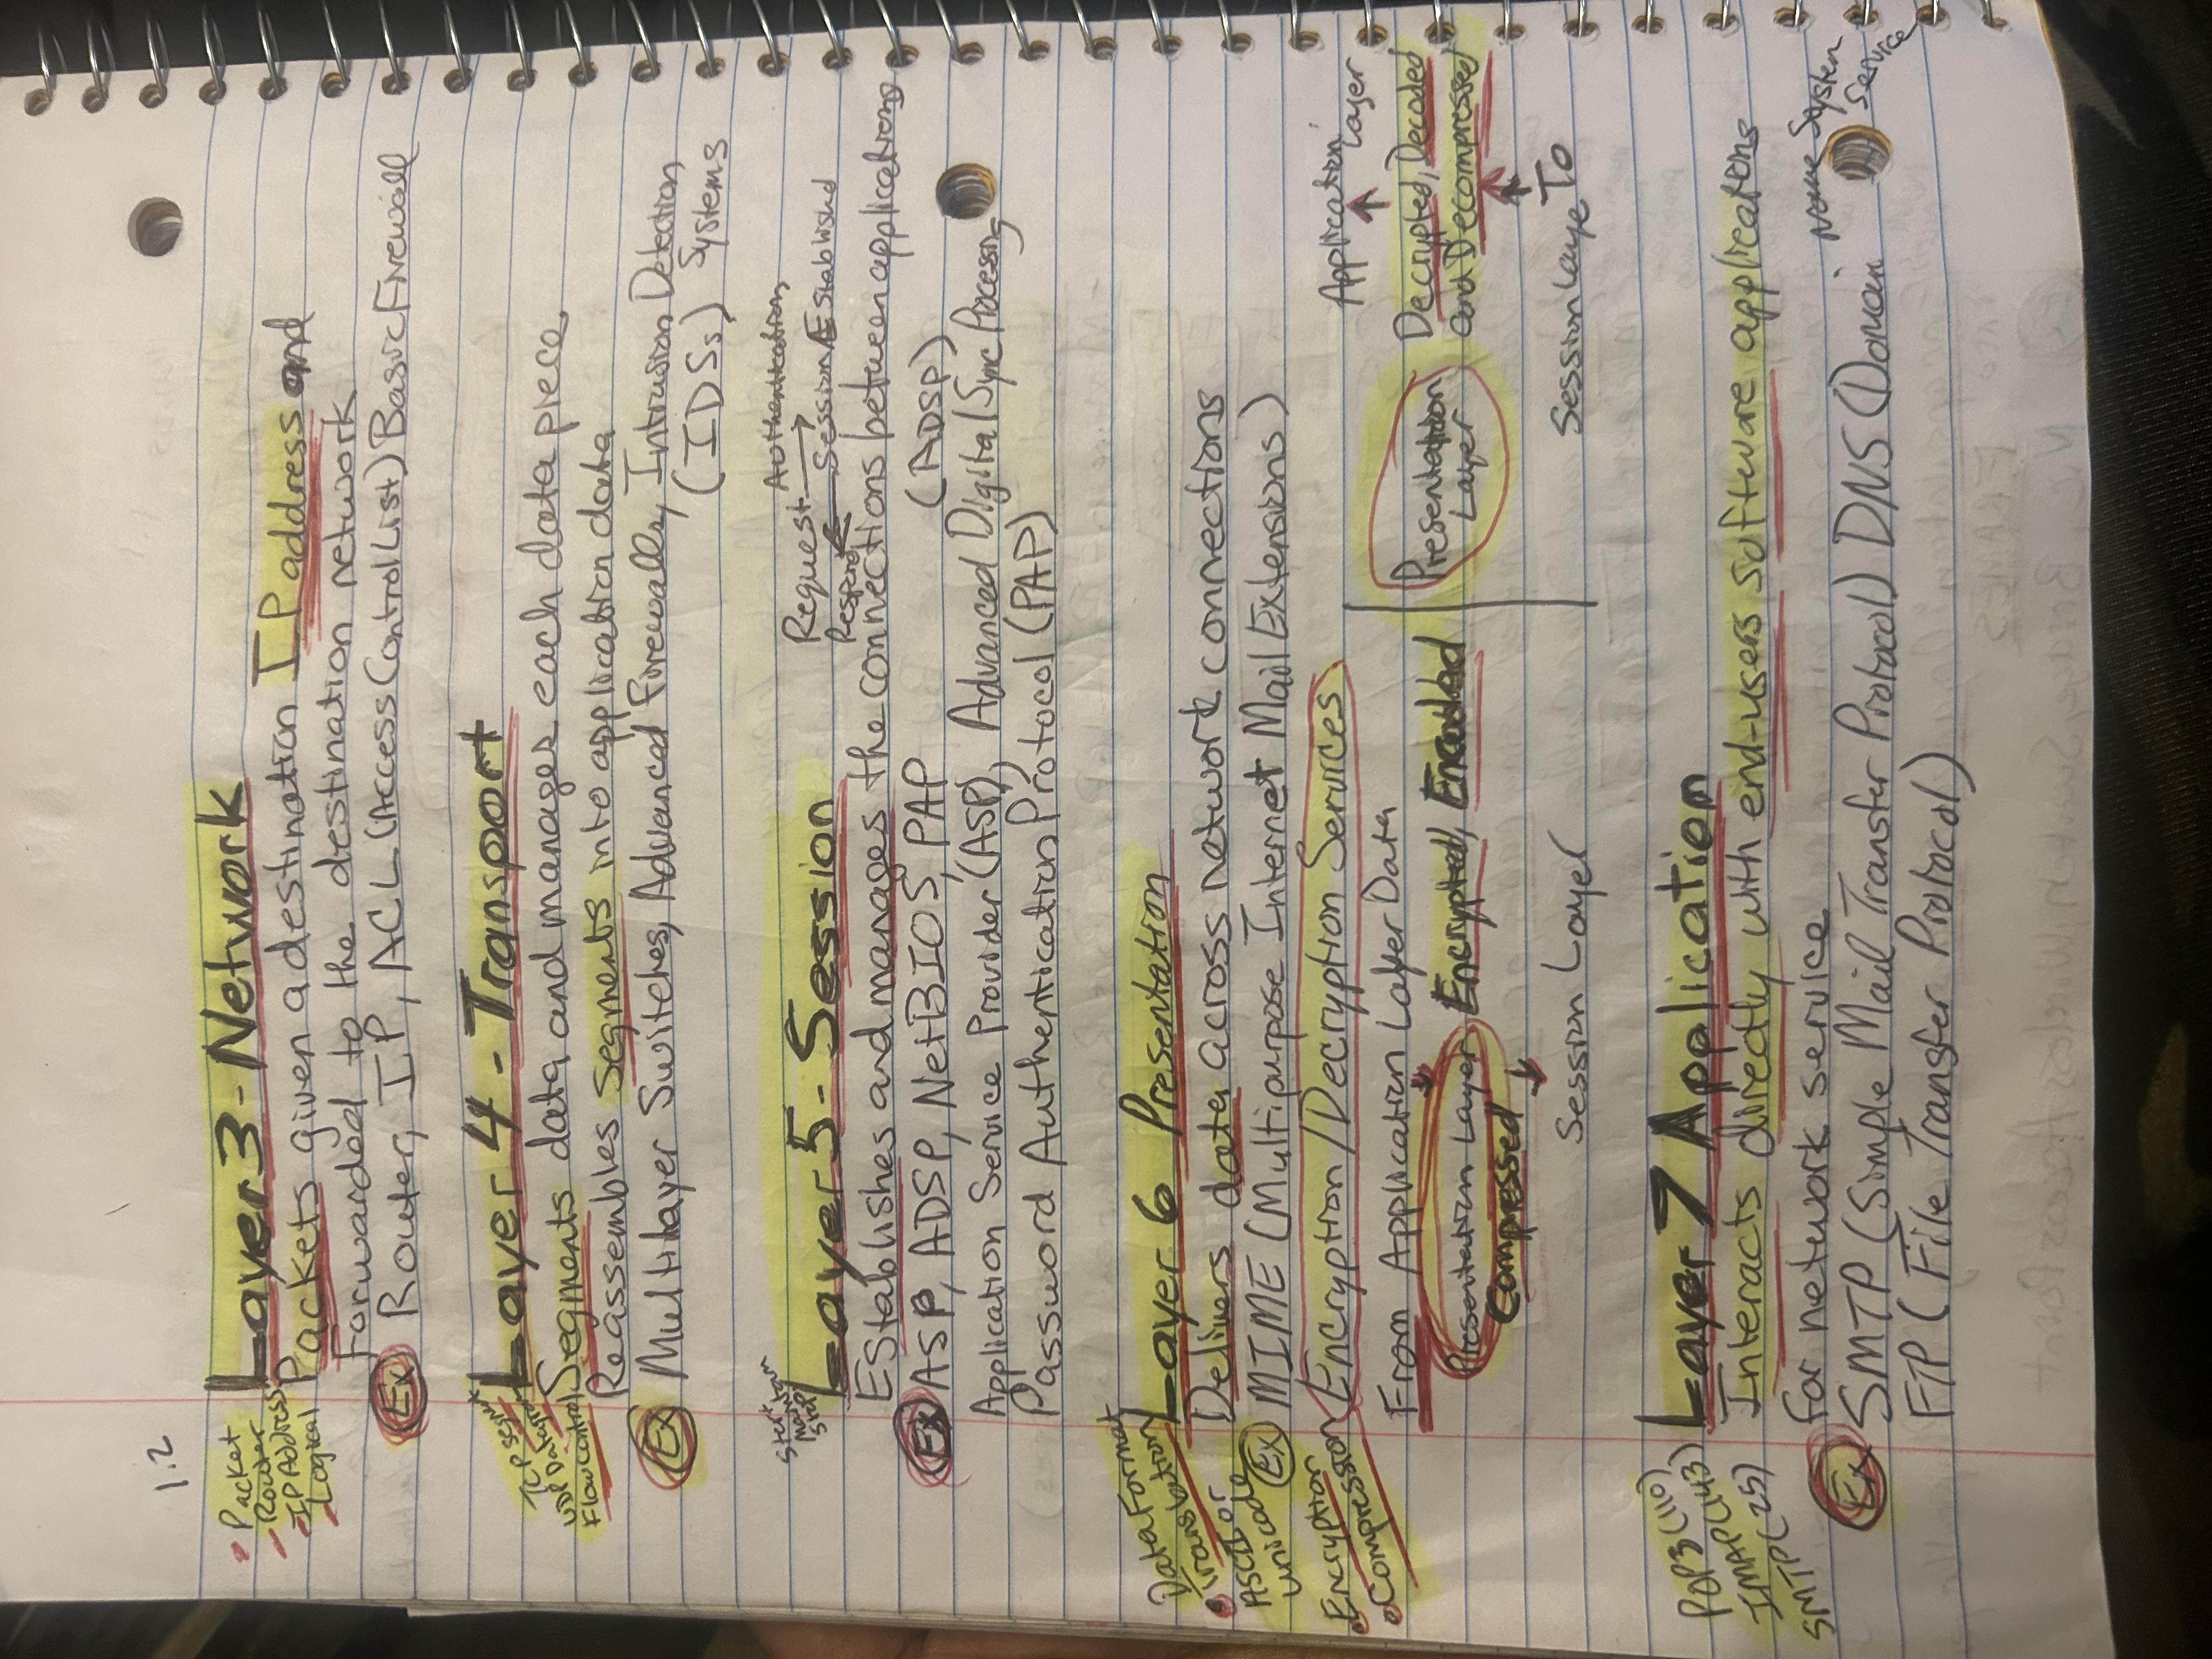 1.2
Packet
Router
IP Address
Logical
Layer 3 - Network
Packets given a destination IP address and
forwarded to the destination network
Ex Router, IP, ACL (Access Control List) Basic Firewall
TCP Segment
UDP Datagram
Flow Control
Layer 4 - Transport
Segments data and manages each data piece
Reassembles segments into application data
Ex Multilayer Switches, Advanced firewalls, Intrusion Detection
(IDSs) Systems
Start
Maintain
Stop
Layer 5 - Session
Request → Authentication
Respond ← Session Established
Establishes and manages the connections between applications
Ex ASP, ADSP, NetBIOS, PAP (ADSP)
Application Service Provider (ASP), Advanced Digital Sync Processing
Password Authentication Protocol (PAP)
Data Format
Translation
ASCII or
unicode
Encryption
Compression
Layer 6 Presentation
Delivers data across network connections
Ex MIME (Multipurpose Internet Mail Extensions)
Encryption/Decryption Services
From Application Layer Data
↓
Presentation Layer Encrypted, Encoded
Compressed
↓
Session Layer
Application Layer
↑
Presentation Layer
Decrypted, Decoded
and Decompressed
↑
Session Laye To
POP3 (110)
IMAP (143)
SMTP (25)
Layer 7 Application
Interacts directly with end-users software applications
for network service
Ex SMTP (Simple Mail Transfer Protocol) DNS (Domain
Name System
Service
FTP (File Transfer Protocol)